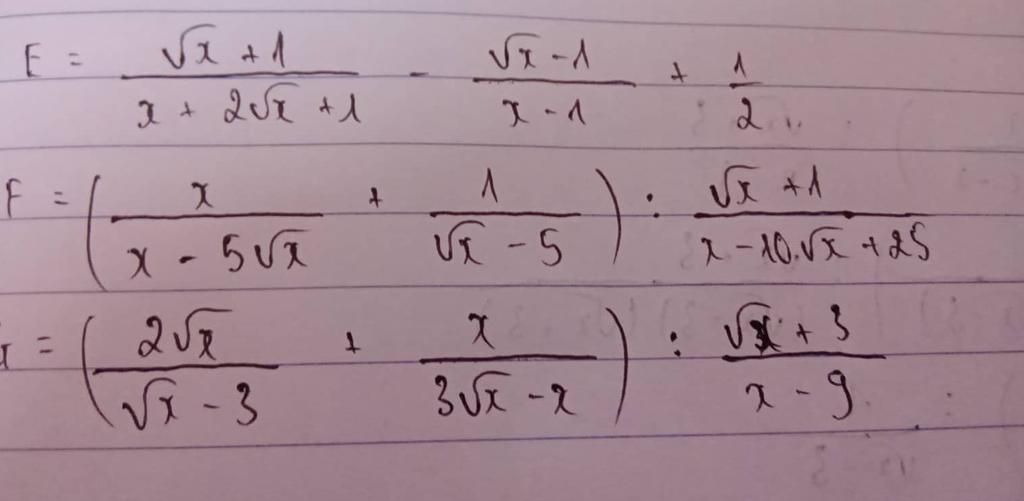 E = (√x + 1)/(x + 2√x + 1) - (√x - 1)/(x - 1) + 1/2
F = (x/(x - 5√x) + 1/(√x - 5)) : (√x + 1)/(x - 10.√x + 25)
= (2√x/(√x - 3) + x/(3√x - x)) : (√x + 3)/(x - 9)